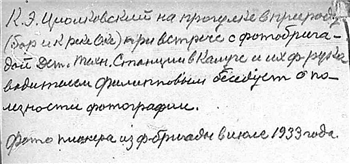 К.Э. Циолковский на прогулке в природу
(бор и к реке Оке) при встрече с фотобрига-
дой Дет. Техн. Станции в Калуге и их ф-руко
водителем Филипповым беседует о по-
лезности фотографии.
Фото пионера из ф-бригады в июле 1933 года.